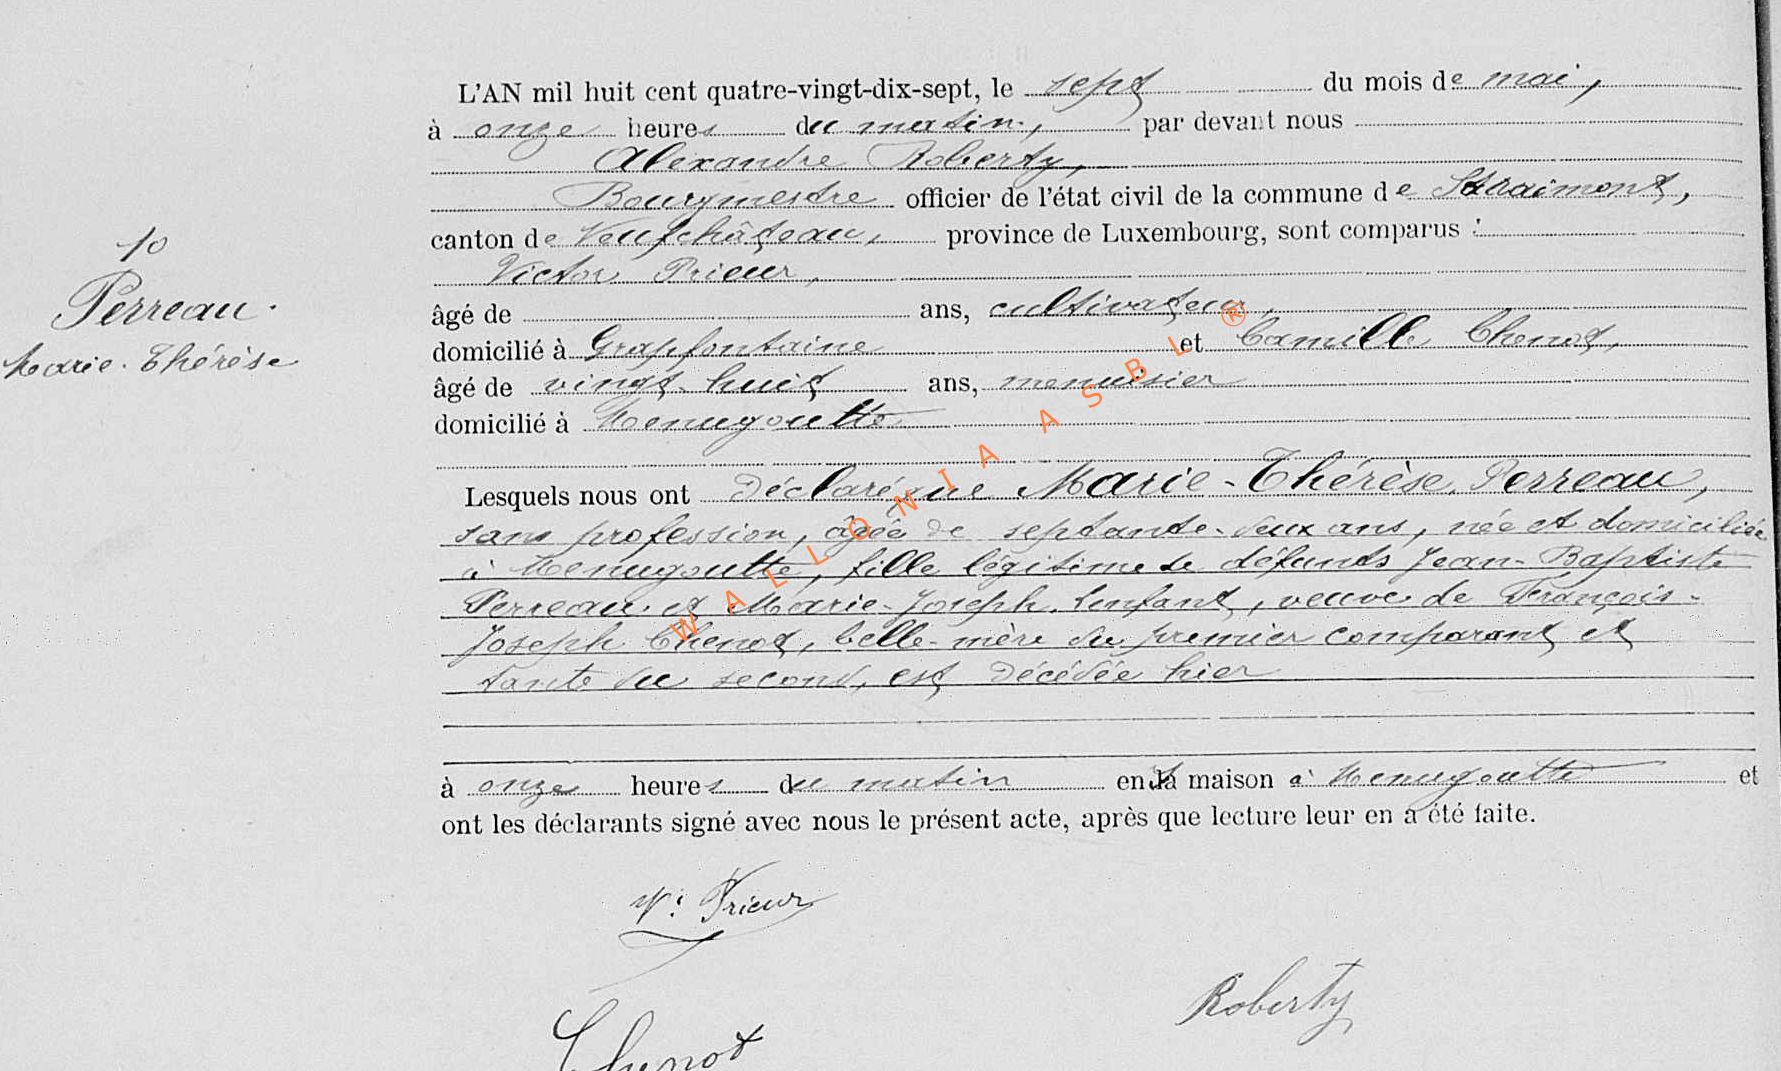 L'AN mil huit cent quatre-vingt-dix-sept, le sept du mois de mai,
à onze heures du matin, par devant nous
Alexandre Roberty,
Bourgmestre officier de l'état civil de la commune de Straimont,
canton de Neufchâteau, province de Luxembourg, sont comparus :
Victor Prieur,
âgé de ans, cultivateur,
domicilié à Grapfontaine et Camille Chenot,
âgé de vingt-huit ans, menuisier
domicilié à Menugoutte
10
Perreau.
Marie-Thérèse
Lesquels nous ont déclaré que Marie-Thérèse Perreau,
sans profession, âgée de septante-deux ans, née et domiciliée
à Menugoutte, fille légitime de défunts Jean-Baptiste
Perreau et Marie-Joseph Lenfant, veuve de François-
Joseph Chenot, belle-mère du premier comparant et
tante du second, est décédée hier
à onze heures du matin en sa maison à Menugoutte et
ont les déclarants signé avec nous le présent acte, après que lecture leur en a été faite.
V. Prieur
Roberty
Chenot
WALLONIA ASBL ®